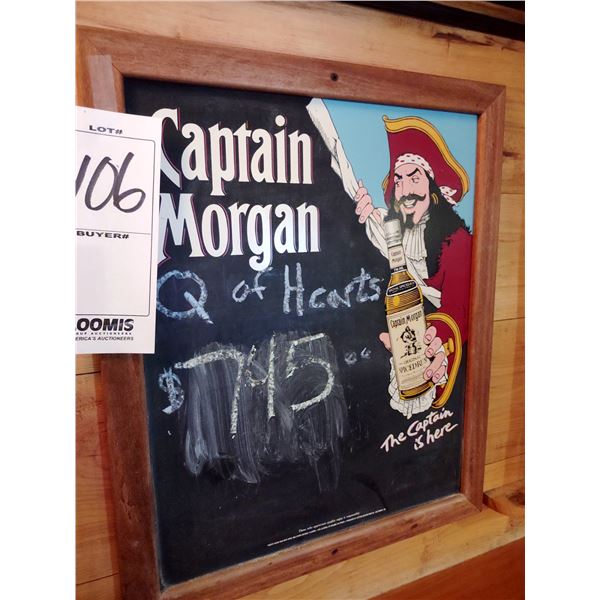 LOT#
106
BUYER#
LOOMIS
AMERICA'S AUCTIONEERS
Captain
Morgan
Q of Hearts
$745.00
Captain Morgan
ORIGINAL
SPICED RUM
The Captain
is here